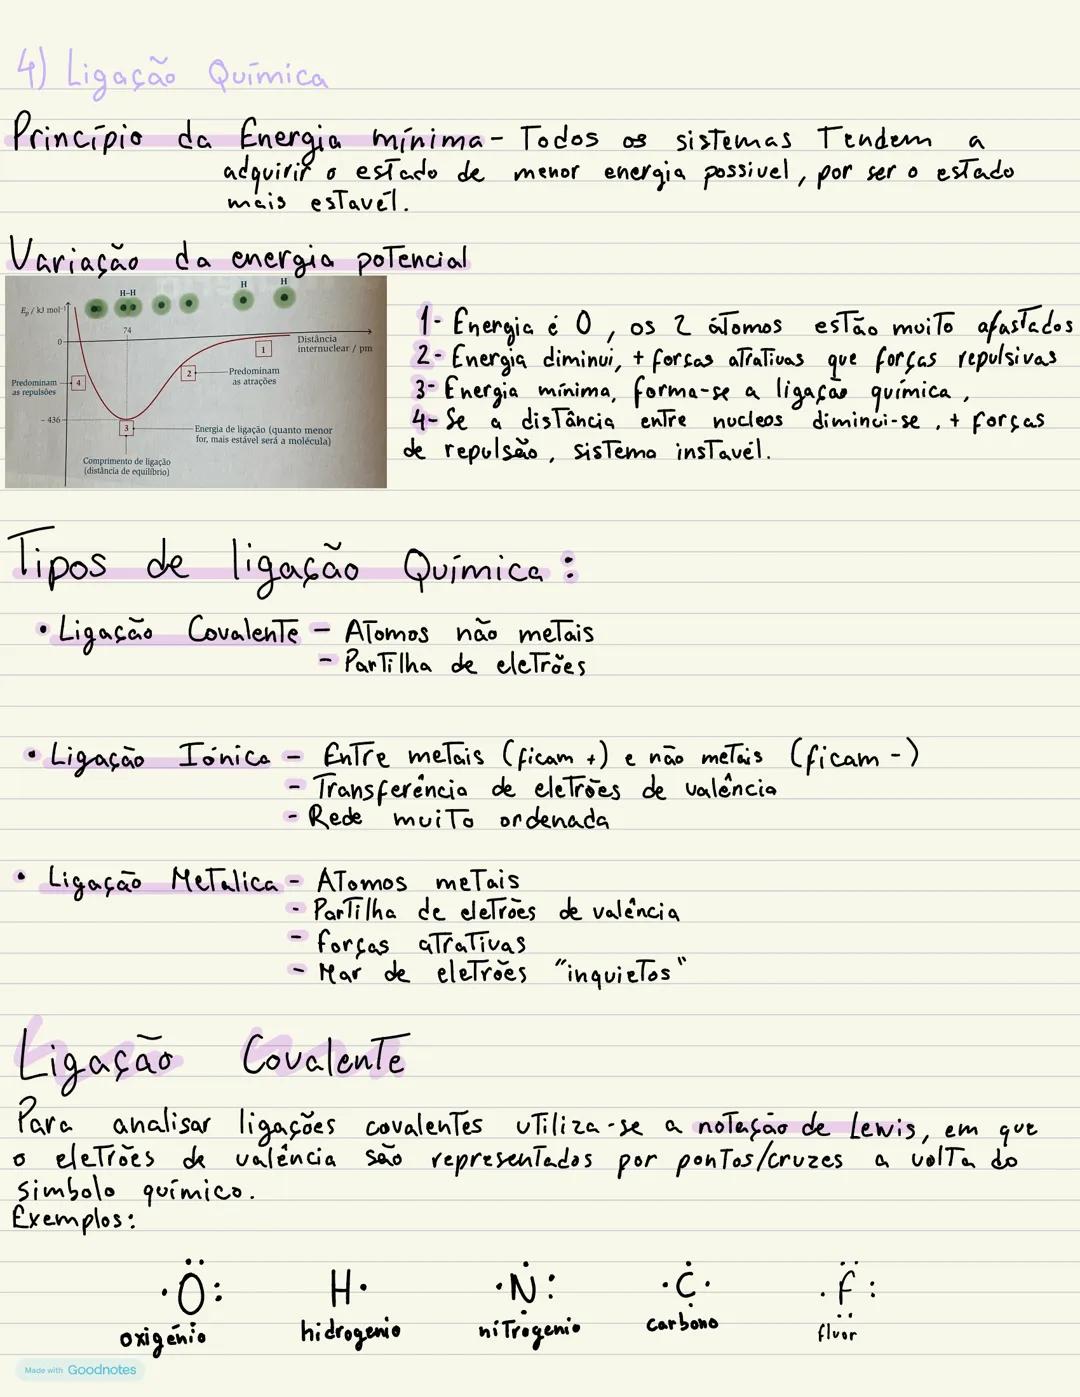 4) Ligação Química
Princípio da Energia mínima - Todos os sistemas Tendem a
adquirir o estado de menor energia possivel, por ser o estado
mais estavél.
Variação da energia potencial
H-H
H
H
Ep / kJ mol-1
74
0
Distância
internuclear / pm
1
2
Predominam
as atrações
Predominam
as repulsões
4
- 436
3
Energia de ligação (quanto menor
for, mais estável será a molécula)
Comprimento de ligação
(distância de equilíbrio)
1- Energia é 0, os 2 átomos estão muito afastados
2- Energia diminui, + forsas atrativas que forças repulsivas
3- Energia mínima, forma-se a ligação química,
4- Se a distância entre nucleos diminui-se, + forças
de repulsão, sistema instavél.
Tipos de ligação Química:
• Ligação Covalente - Atomos não metais
- Partilha de eletrões
• Ligação Iónica - Entre metais (ficam +) e não metais (ficam -)
- Transferência de eletrões de valência
- Rede muito ordenada
• Ligação Metalica - Atomos metais
- Partilha de eletrões de valência
- forças atrativas
- Mar de eletrões "inquietos"
Ligação Covalente
Para analisar ligações covalentes utiliza-se a notação de Lewis, em que
o eletrões de valência são representados por pontos/cruzes a volta do
simbolo químico.
Exemplos:
O H N C F
oxigénio hidrogenio nitrogenio carbono fluor
Made with Goodnotes